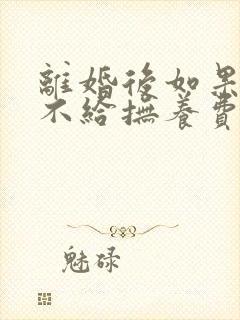 離婚後如果
不給撫養費
魅碌